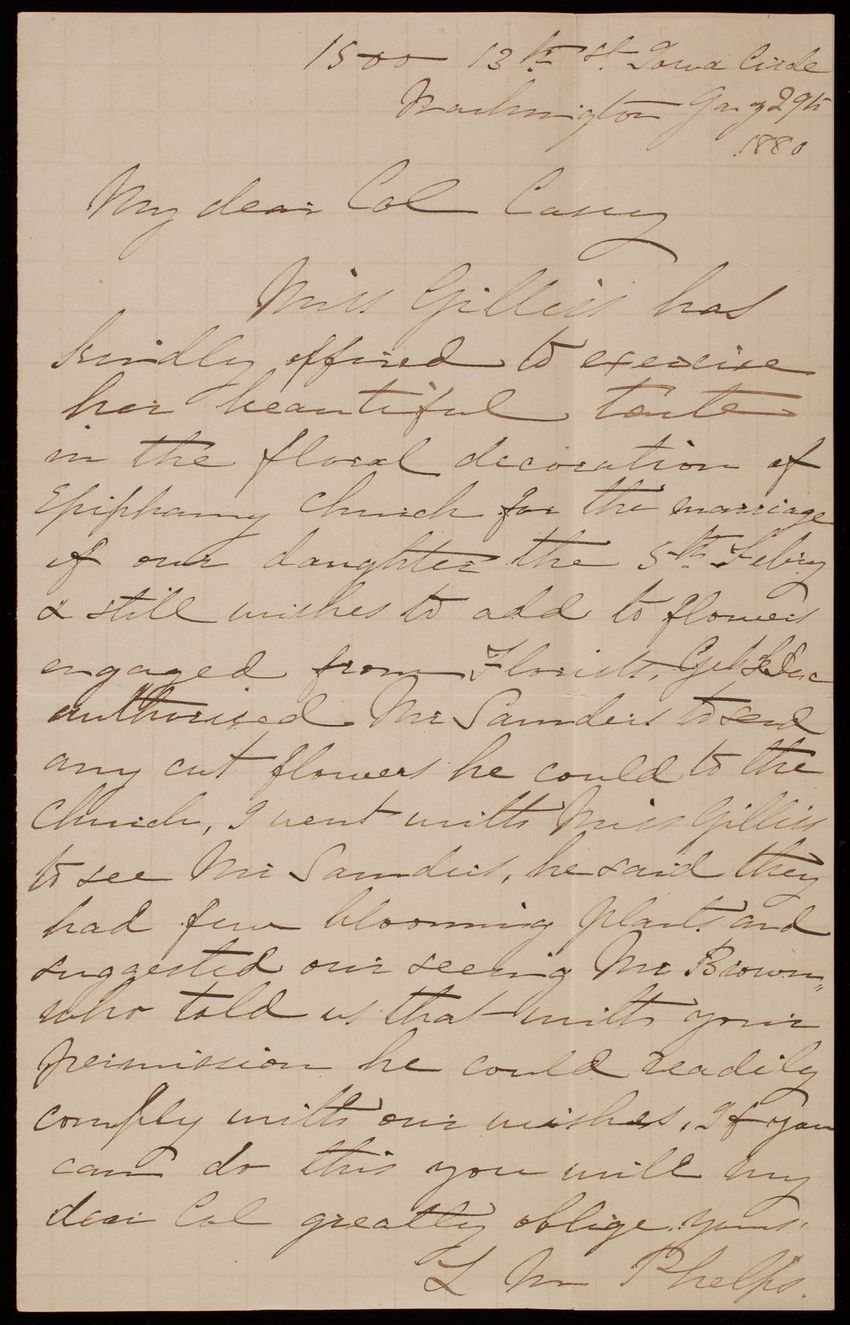 1500 13th St. Iowa Circle
Washington Jany 29th
1880
My dear Col Casey
Miss Gilliss has
kindly offered to exercise
her beautiful taste
in the floral decoration of
Epiphany Church for the marriage
of our daughter the 5th Febry
& still wishes to add to flowers
engaged from Florists, Genl Le Duc
authorised Mr Saunders to send
any cut flowers he could to the
Church, I went with Miss Gilliss
to see Mr Saunders, he said they
had few blooming plants and
suggested our seeing Mr Brown,
who told us that with your
permission he could readily
comply with our wishes. If you
can do this you will my
dear Col greatly oblige yours.
L M Phelps.